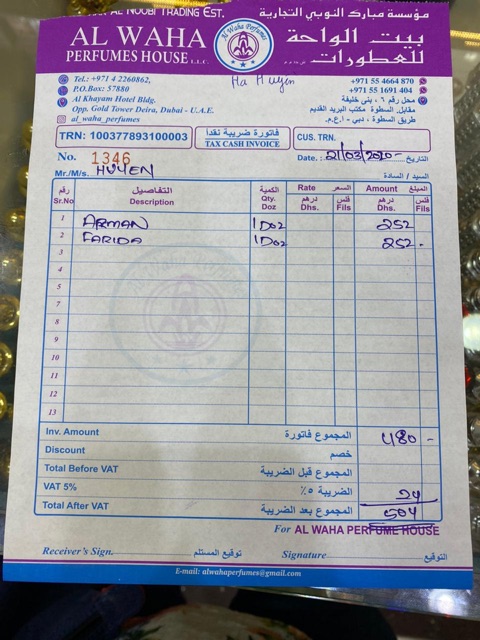 AR AL NOOBI TRADING EST.
مؤسسة مبارك النوبي التجارية
AL WAHA
PERFUMES HOUSE L.L.C.
Al Waha Perfumes
بيت الواحة
للعطورات ش.ذ.م.م
Ha Huyen
Tel.: +971 4 2260862,
P.O.Box: 57880
Al Khayam Hotel Bldg.
Opp. Gold Tower Deira, Dubai - U.A.E.
al_waha_perfumes
+971 55 4664 870
+971 55 1691 404
محل رقم ٦ ، بني خليفة
مقابل السطوة مكتب البريد القديم
طريق السطوة، دبي - ا.ع.م.
TRN: 100377893100003
فاتورة ضريبة نقدا
TAX CASH INVOICE
CUS. TRN.
No. 1346
Date: 21/03/2020 التاريخ
Mr./M/s. HUYEN السيد / السادة
رقم التفاصيل الكمية Rate السعر Amount المبلغ
Sr.No Description Qty. Doz درهم Dhs. فلس Fils درهم Dhs. فلس Fils
1 ARMAN 1 Doz 252
2 FARIDA 1 Doz 252 -
3
4
5
6
7
8
9
10
11
12
13
Inv. Amount المجموع فاتورة 480 -
Discount خصم
Total Before VAT المجموع قبل الضريبة
VAT 5% الضريبة ٥٪ 24
Total After VAT المجموع بعد الضريبة 504
For AL WAHA PERFUME HOUSE
Receiver's Sign. توقيع المستلم Signature التوقيع
E-mail: alwahaperfumes@gmail.com